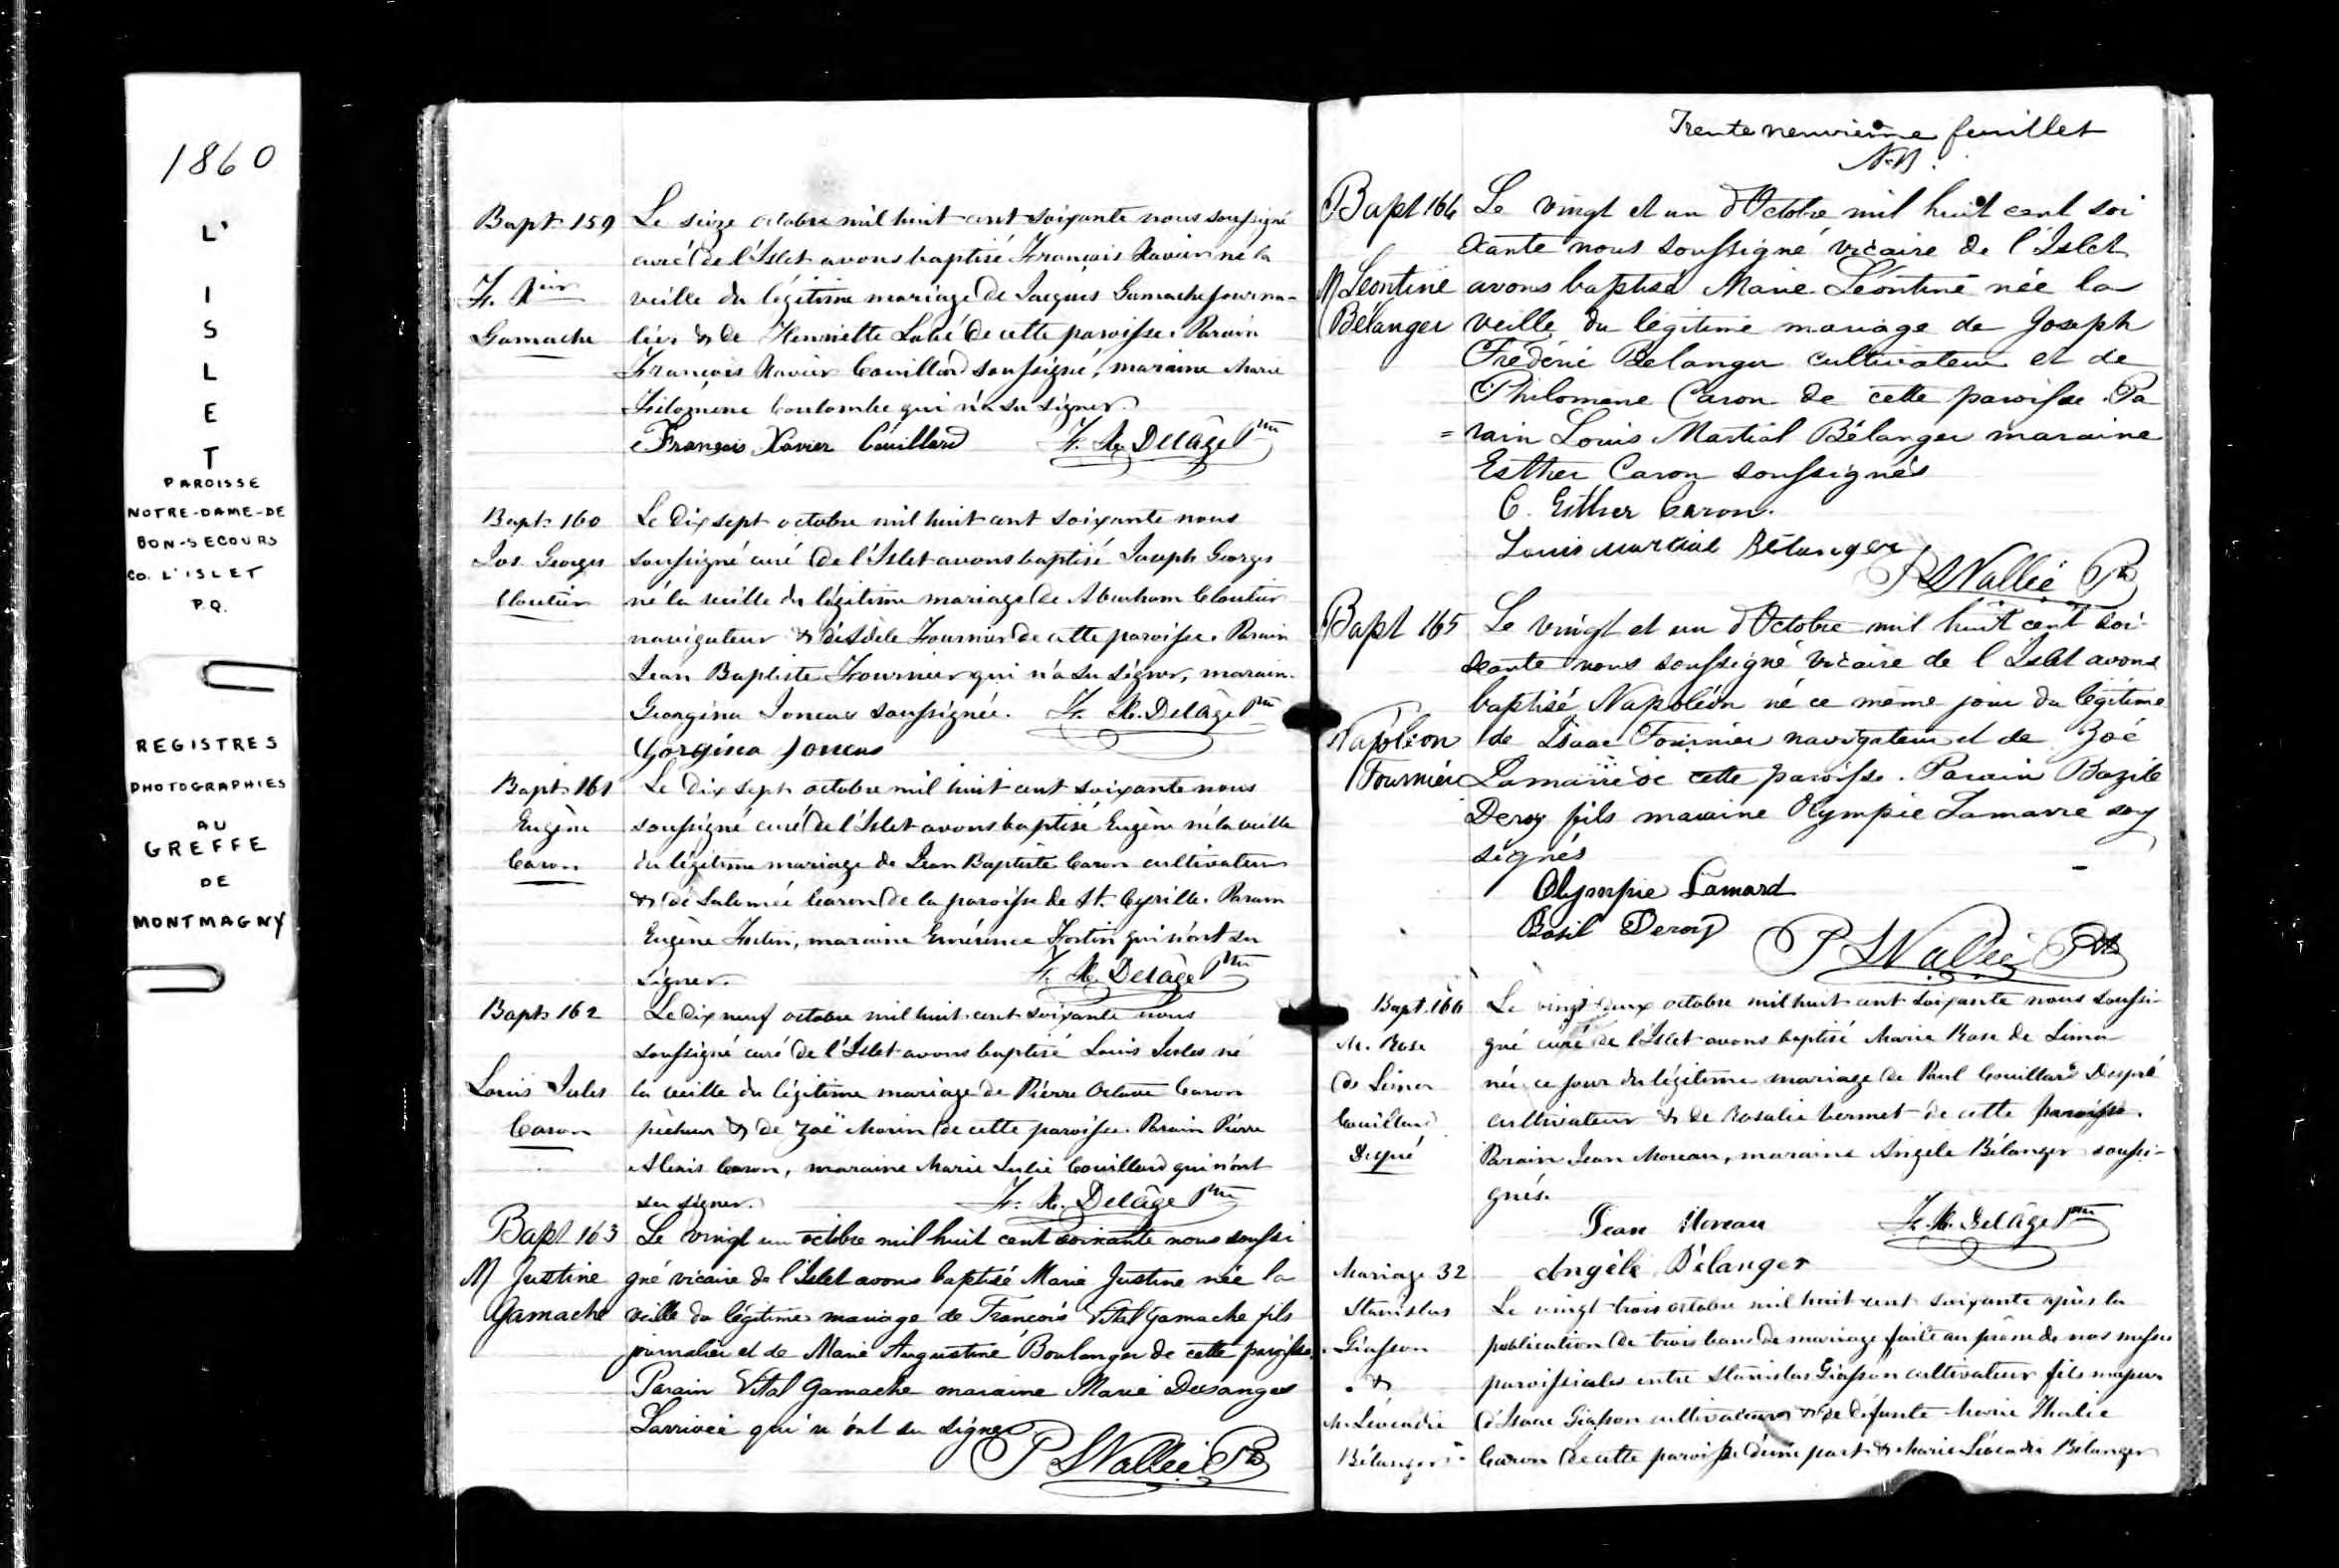 1860
L'
I
S
L
E
T
PAROISSE
NOTRE-DAME-DE
BON-SECOURS
CO. L'ISLET
P.Q.
REGISTRES
PHOTOGRAPHIES
AU
GREFFE
DE
MONTMAGNY
Bapt. 159
F. Xier
Gamache
Le seize octobre mil huit cent soixante nous soussigné
curé de l'Islet avons baptisé François Xavier né la
veille du légitime mariage de Jacques Gamache journa-
lier & de Henriette Labé de cette paroisse. Parain
François Xavier Couillard soussigné, maraine Marie
Filomène Coulombe qui n'a su signer.
François Xavier Couillard F. X. Delâge Ptre
Bapt. 160
Jos. Georges
Cloutier
Le dix sept octobre mil huit cent soixante nous
soussigné curé de l'Islet avons baptisé Joseph Georges
né la veille du légitime mariage de Abraham Cloutier
navigateur & d'Adèle Fournier de cette paroisse. Parain
Jean Baptiste Fournier qui n'a su signer, marain.
Georgina Joncas soussignée. F. X. Delâge Ptre
Gorgina Joncas
Bapt. 161
Eugène
Caron
Le dix sept octobre mil huit cent soixante nous
soussigné curé de l'Islet avons baptisé Eugène né la veille
du légitime mariage de Jean Baptiste Caron cultivateur
& de Salomée Caron de la paroisse de St. Cyrille. Parain
Eugène Fortin, maraine Emérence Fortin qui n'ont su
signer. F. X. Delâge Ptre
Bapt. 162
Louis Jules
Caron
Le dix neuf octobre mil huit cent soixante nous
soussigné curé de l'Islet avons baptisé Louis Jules né
la veille du légitime mariage de Pierre Octave Caron
pêcheur & de Zoë Morin de cette paroisse. Parain Pierre
Alexis Caron, maraine Marie Julie Couillard qui n'ont
su signer. F. X. Delâge Ptre
Bapt 163
M Justine
Gamache
Le vingt un octobre mil huit cent soixante nous soussi
gné vicaire de l'Islet avons baptisé Marie Justine née la
veille du légitime mariage de François Vital Gamache fils
journalier et de Marie Augustine Boulanger de cette paroisse.
Parain Vital Gamache maraine Marie Desanges
Larrivée qui n'ont su signer
P S Vallée Ptr
Trente neuvième feuillet
Bapt 164
M Leontine
Bélanger
Le vingt et un d'Octobre mil huit cent soi
xante nous soussigné vicaire de l'Islet
avons baptisé Marie Léontine née la
veille du légitime mariage de Joseph
Frédéric Belanger cultivateur et de
Philomene Caron de cette paroisse. Pa
=rain Louis Martial Bélanger maraine
Esther Caron soussignés
C. Esther Caron.
Louis Martial Bélanger
P S Vallée Ptr
Bapt 165
Napoléon
Fournier
Le vingt et un d'Octobre mil huit cent soi-
xante nous soussigné vicaire de l Islet avons
baptisé Napoléon né ce même jour du légitime
de Isaac Fournier navigateur et de Zoé
Lamarre de cette paroisse. Parain Bazile
Deroy fils maraine Olympie Lamarre sous
signés
Olympie Lamard
Basil Deroy
P S Vallée Ptr
Bapt. 166
M. Rose
de Lima
Couillard
Dupré
Le vingt deux octobre mil huit cent soixante nous soussi-
gné curé de l'Islet avons baptisé Marie Rose de Lima
née ce jour du légitime mariage de Paul Couillard Dupré
cultivateur & de Rosalie Vermet de cette paroisse.
Parain Jean Moreau, maraine Angèle Bélanger soussi-
gnés.
Jean Moreau F. X. Delâge Ptre
Angèle Bélanger
Mariage 32
Stanislas
Giasson
&
M. Léocadie
Bélanger
Le vingt trois octobre mil huit cent soixante après la
publication de trois bans de mariage faite au prône de nos messes
paroissiales entre Stanislas Giasson cultivateur fils majeur
d'Isaac Giasson cultivateur & de défunte Marie Thalie
Caron de cette paroisse d'une part & Marie Léocadie Bélanger